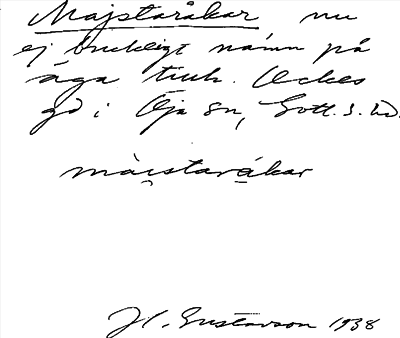 Majstaråkar nu
ej brukligt namn på
äga tillh. Ockes
gd i Öja sn, Gotl. s. hd.
màistaråkar
H. Gustavson 1938